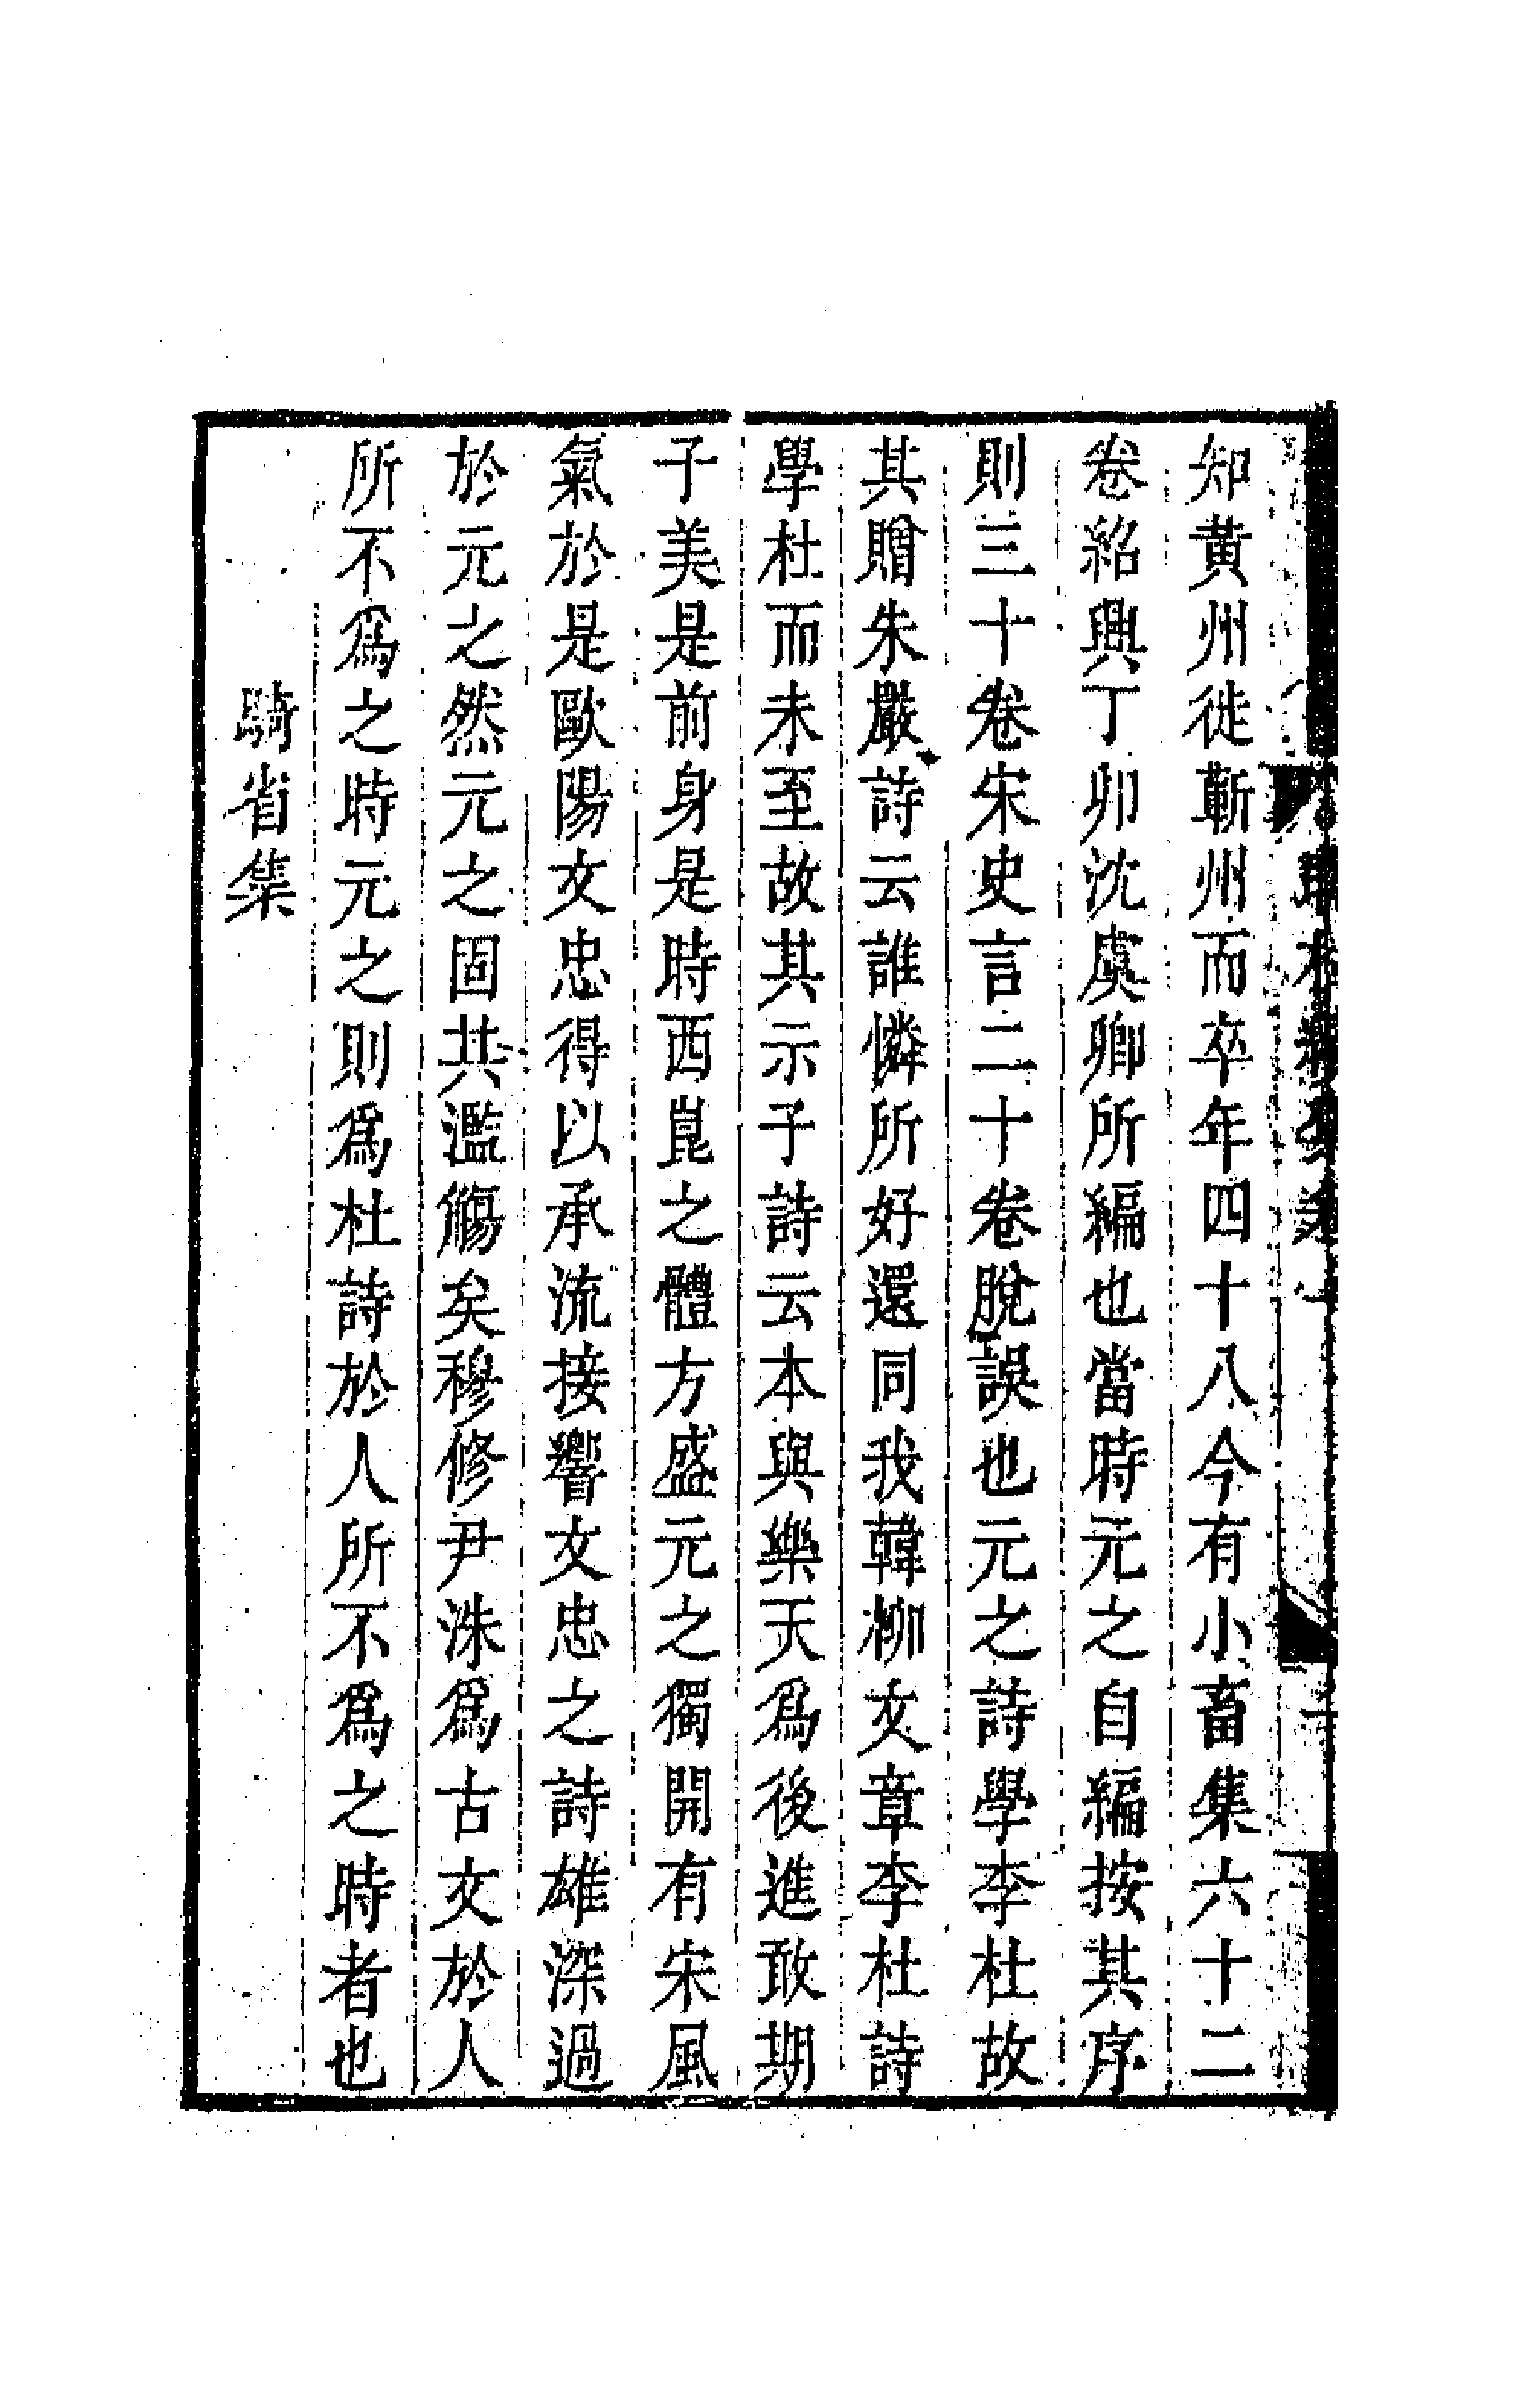 知黃州徙蘄州而卒年四十八今有小畜集六十二
卷紹興丁卯沈虞卿所編也當時元之自編按其序
則三十卷宋史言二十卷脫誤也元之詩學李杜故
其贈朱嚴詩云誰憐所好還同我韓柳文章李杜詩
學杜而未至故其示子詩云本與樂天爲後進敢期
子美是前身是時西崑之體方盛元之獨開有宋風
氣於是歐陽文忠得以承流接響文忠之詩雄深過
於元之然元之固共濫觴矣穆修尹洙爲古文於人
所不爲之時元之則爲杜詩於人所不爲之時者也
騎省集